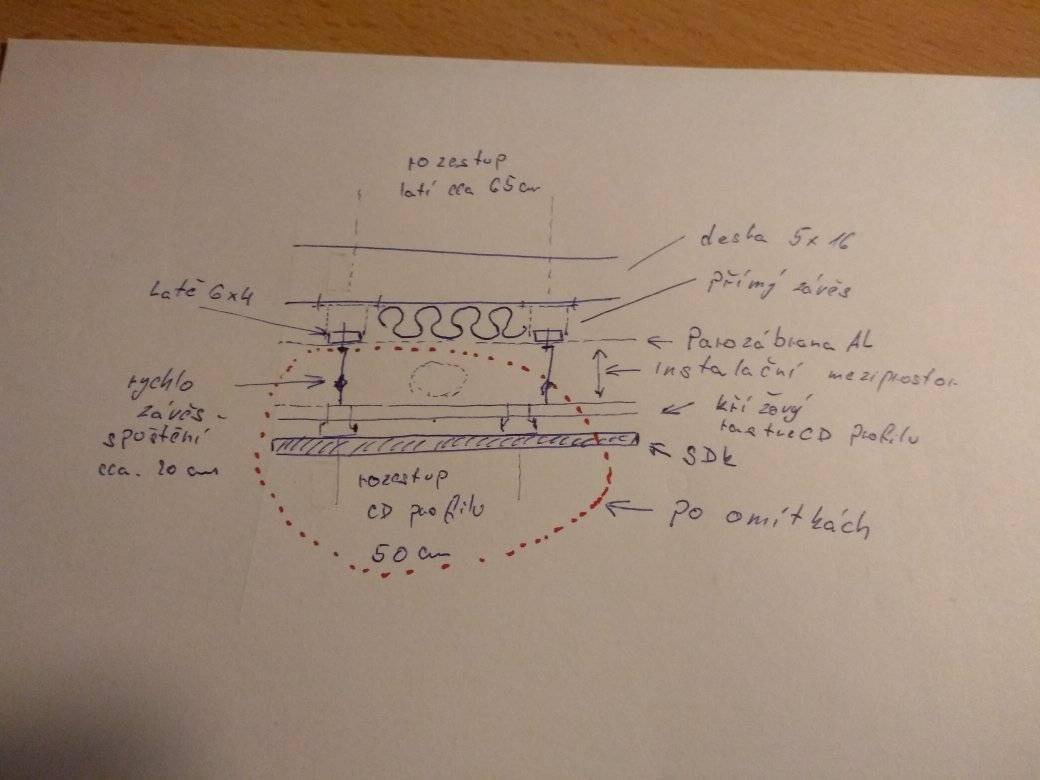 rozestup
latí cca 65 cm
deska 5x16
přímý závěs
Latě 6x4
Parozábrana AL
instalační meziprostor
rychlo
závěs -
spuštění
cca. 20 cm
křížový
CD profilu
SDK
rozestup
CD profilu
50 cm
Po omítkách